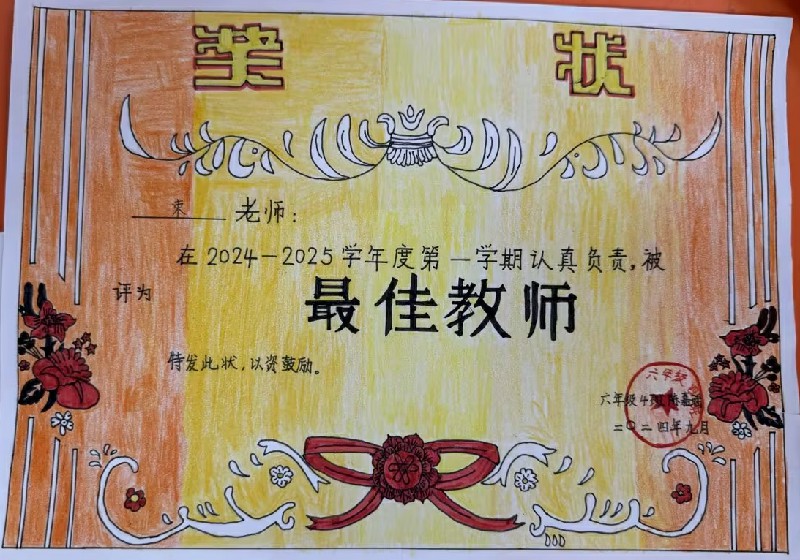 奖状
束 老师:
在2024-2025学年度第一学期认真负责,被
评为
最佳教师
特发此状,以资鼓励。
六年级
六年级4班
二〇二四年九月